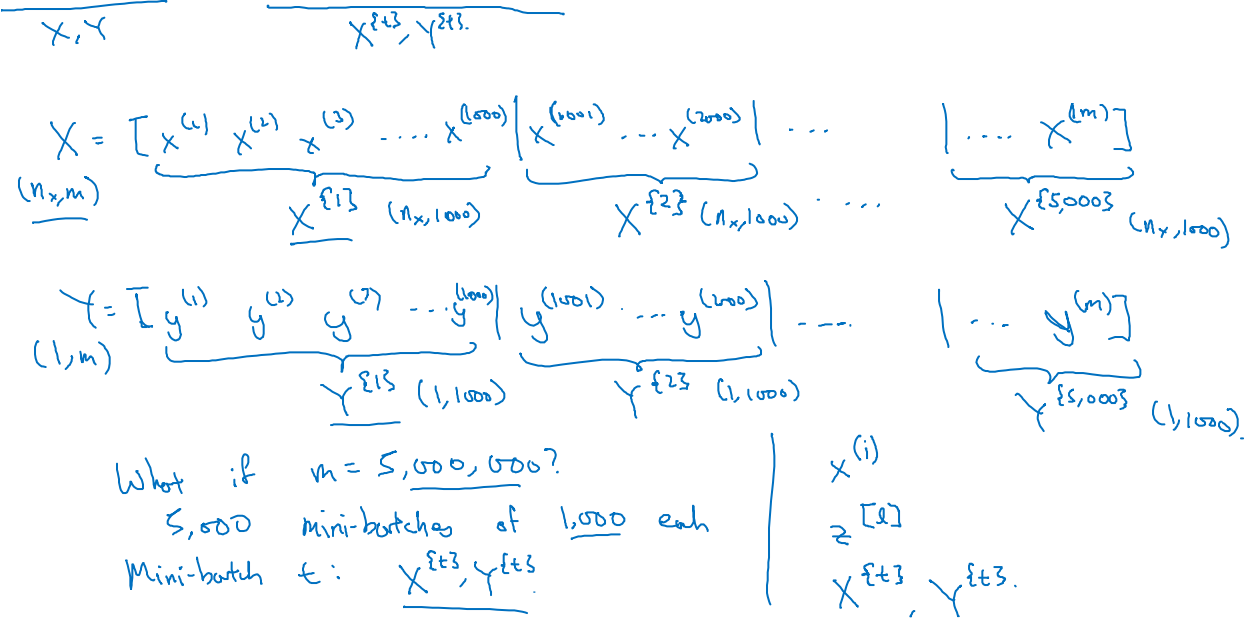 X, Y X^{t}, Y^{t}.
X = [x^(1) x^(2) x^(3) .... x^(1000) | x^(1001) ... x^(2000) | ... | .... x^(m)]
(n_x, m) X^{1} (n_x, 1000) X^{2} (n_x, 1000) ..... X^{5,000} (n_x, 1000)
Y = [y^(1) y^(2) y^(3) ... y^(1000) | y^(1001) .... y^(200) | .... | ... y^(m)]
(1, m) Y^{1} (1, 1000) Y^{2} (1, 1000) Y^{5,000} (1, 1000).
What if m = 5,000,000?
5,000 mini-batches of 1,000 each
Mini-batch t: X^{t}, Y^{t}.
x^(i)
z^[l]
X^{t}, Y^{t}.